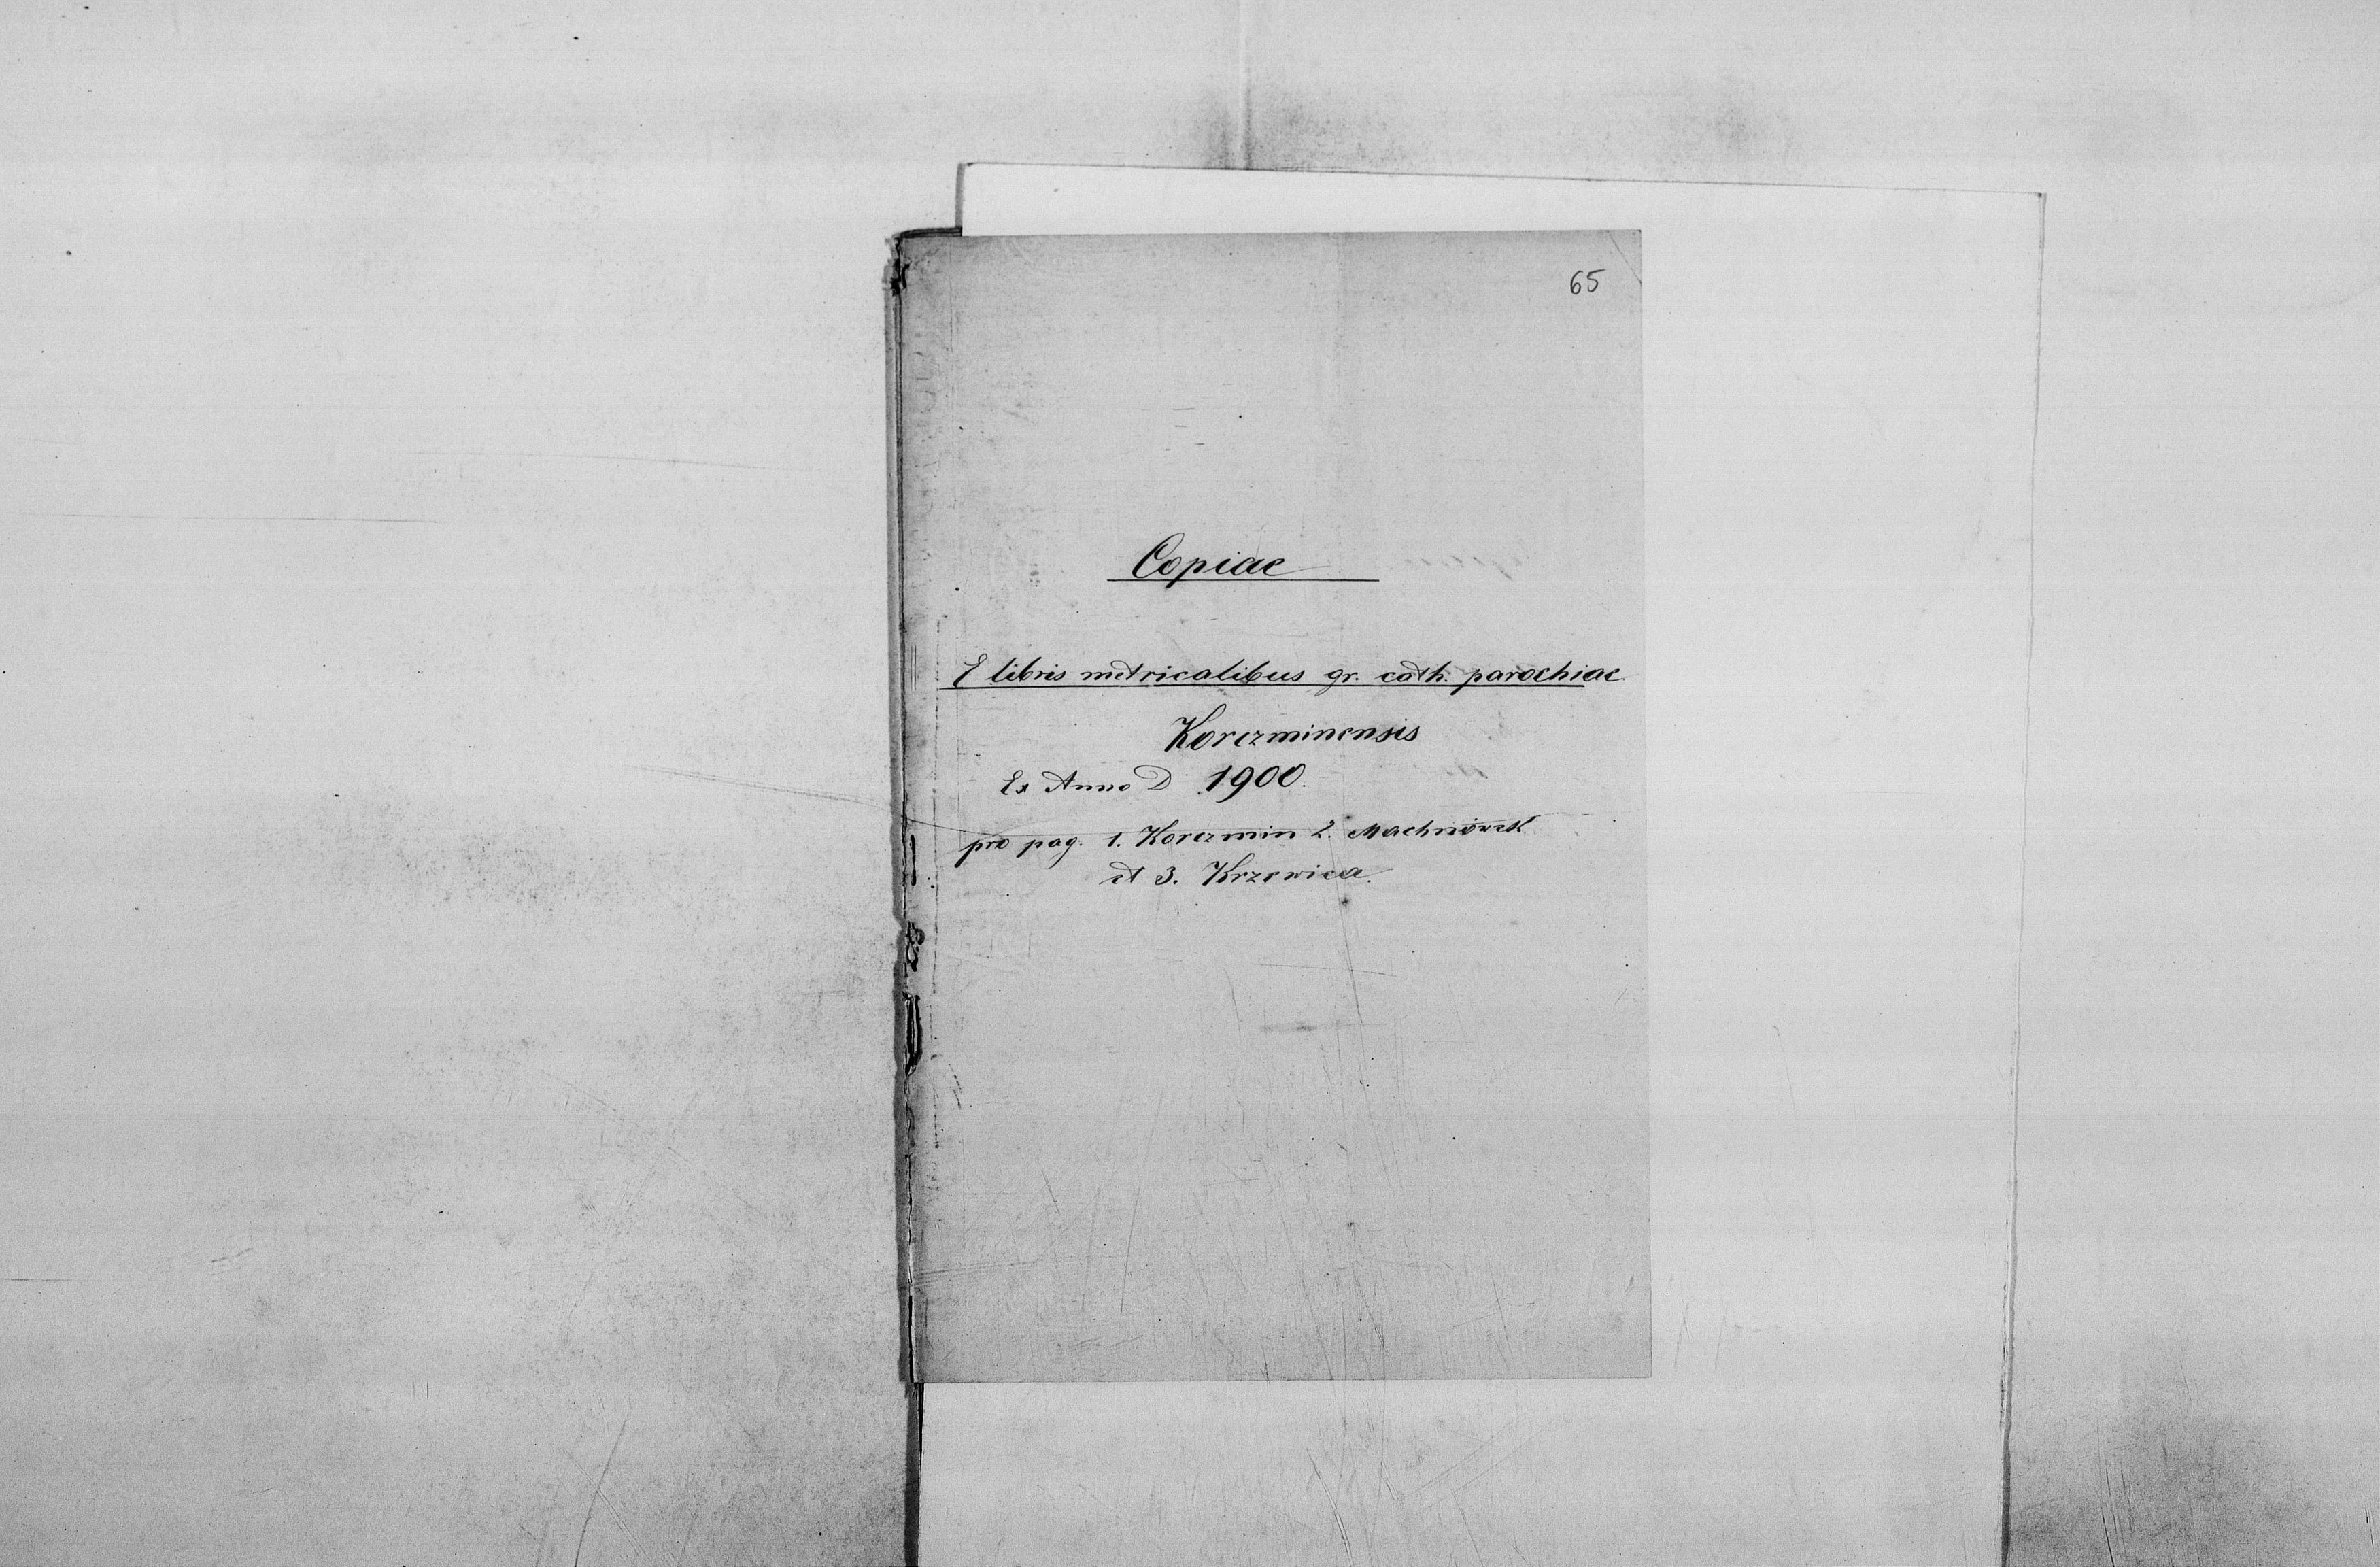 65
Copiae
E libris metricalibus gr. cath. parochiae
Korczminensis
Ex Anno D 1900.
pro pag. 1. Korczmin 2. Machnówek
et 3. Krzewica.